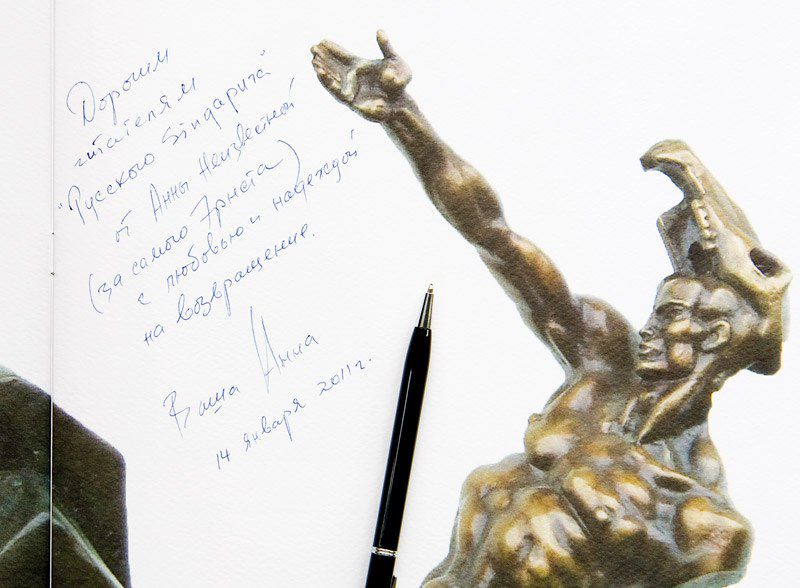 Дорогим
читателям
"Русского Sindариta"
от Анны Неизвестной
(за самого Эрнста)
с любовью и надеждой
на возвращение.
Ваша Анна
14 января 2011 г.